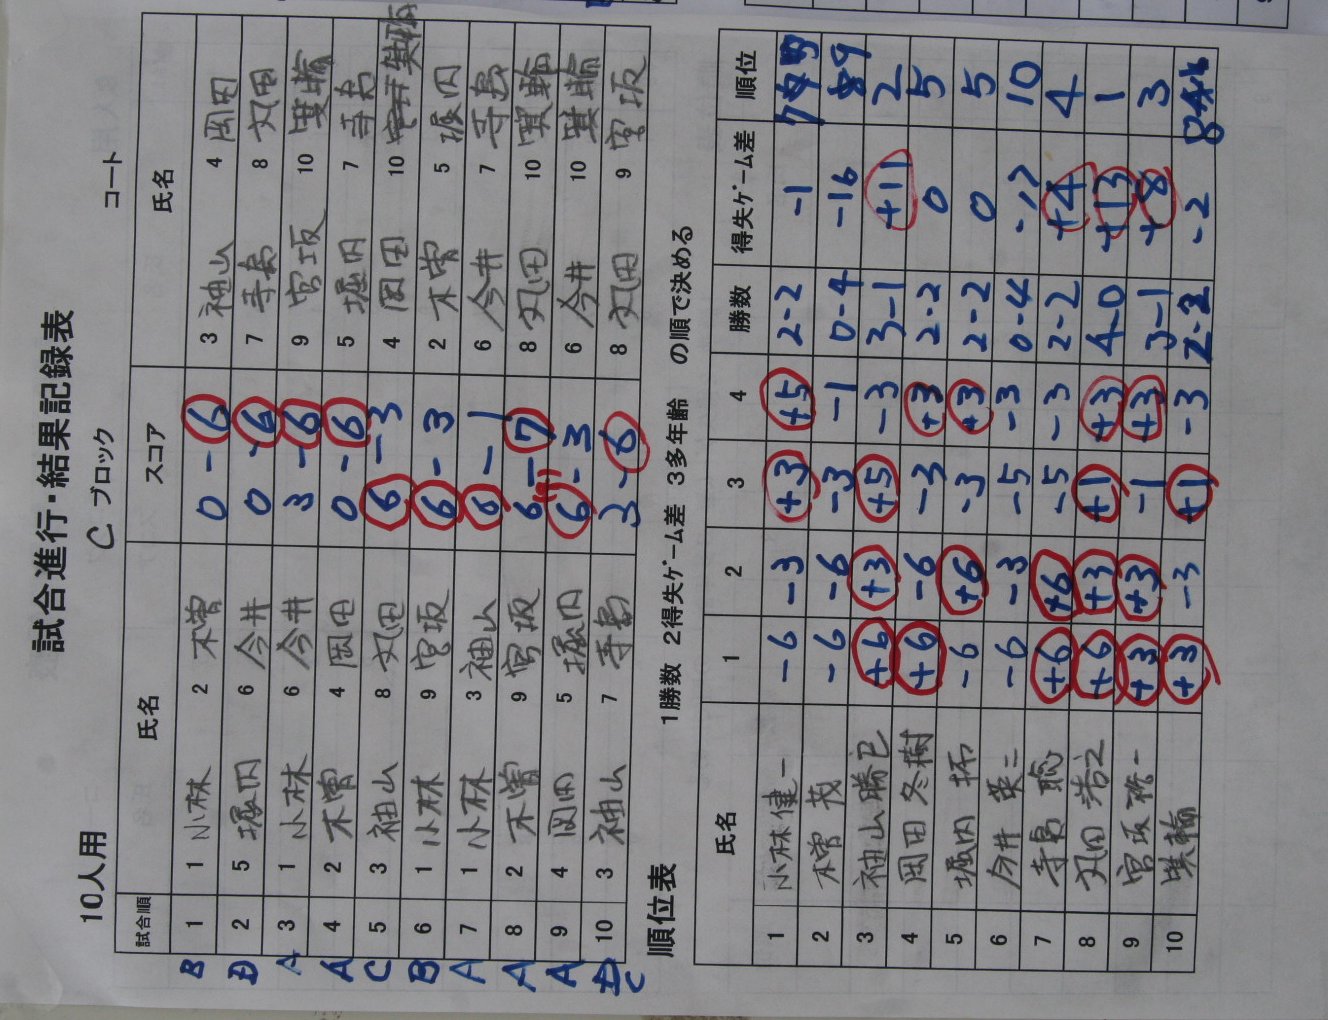 試合進行・結果記録表
10人用 C ブロック コート
試合順 氏名 スコア 氏名
B 1 1 小林 2 木曽 0 - 6 3 袖山 4 岡田
D 2 5 堀内 6 今井 0 - 6 7 寺島 8 刈田
A 3 1 小林 6 今井 3 - 6 9 宮坂 10 箕輪
A 4 2 木曽 4 岡田 0 - 6 5 堀内 7 寺島
C 5 3 袖山 8 刈田 6 - 3 4 岡田 10 箕輪
B 6 1 小林 9 宮坂 6 - 3 2 木曽 5 堀内
A 7 1 小林 3 袖山 6 - 1 6 今井 7 寺島
A 8 2 木曽 9 宮坂 6 - 7 8 刈田 10 箕輪
A 9 4 岡田 5 堀内 6 - 3 6 今井 10 箕輪
C 10 3 袖山 7 寺島 3 - 6 8 刈田 9 宮坂
順位表 1勝数 2得失ゲーム差 3多年齢 の順で決める
氏名 1 2 3 4 勝数 得失ゲーム差 順位
1 小林 健一 -6 -3 +3 +5 2-2 -1 7
2 木曽 茂 -6 -6 -3 -1 0-4 -16 9
3 袖山 勝已 +6 +3 +5 -3 3-1 +11 2
4 岡田 冬樹 +6 -6 -3 +3 2-2 0 5
5 堀内 拓 -6 +6 -3 +3 2-2 0 5
6 今井 英二 -6 -3 -5 -3 0-4 -17 10
7 寺島 聡 +6 +6 -5 -3 2-2 +4 4
8 刈田 浩之 +6 +3 +1 +3 4-0 +13 1
9 宮坂 +3 +3 -1 +3 3-1 +8 3
10 箕輪 +3 -3 +1 -3 2-2 -2 8